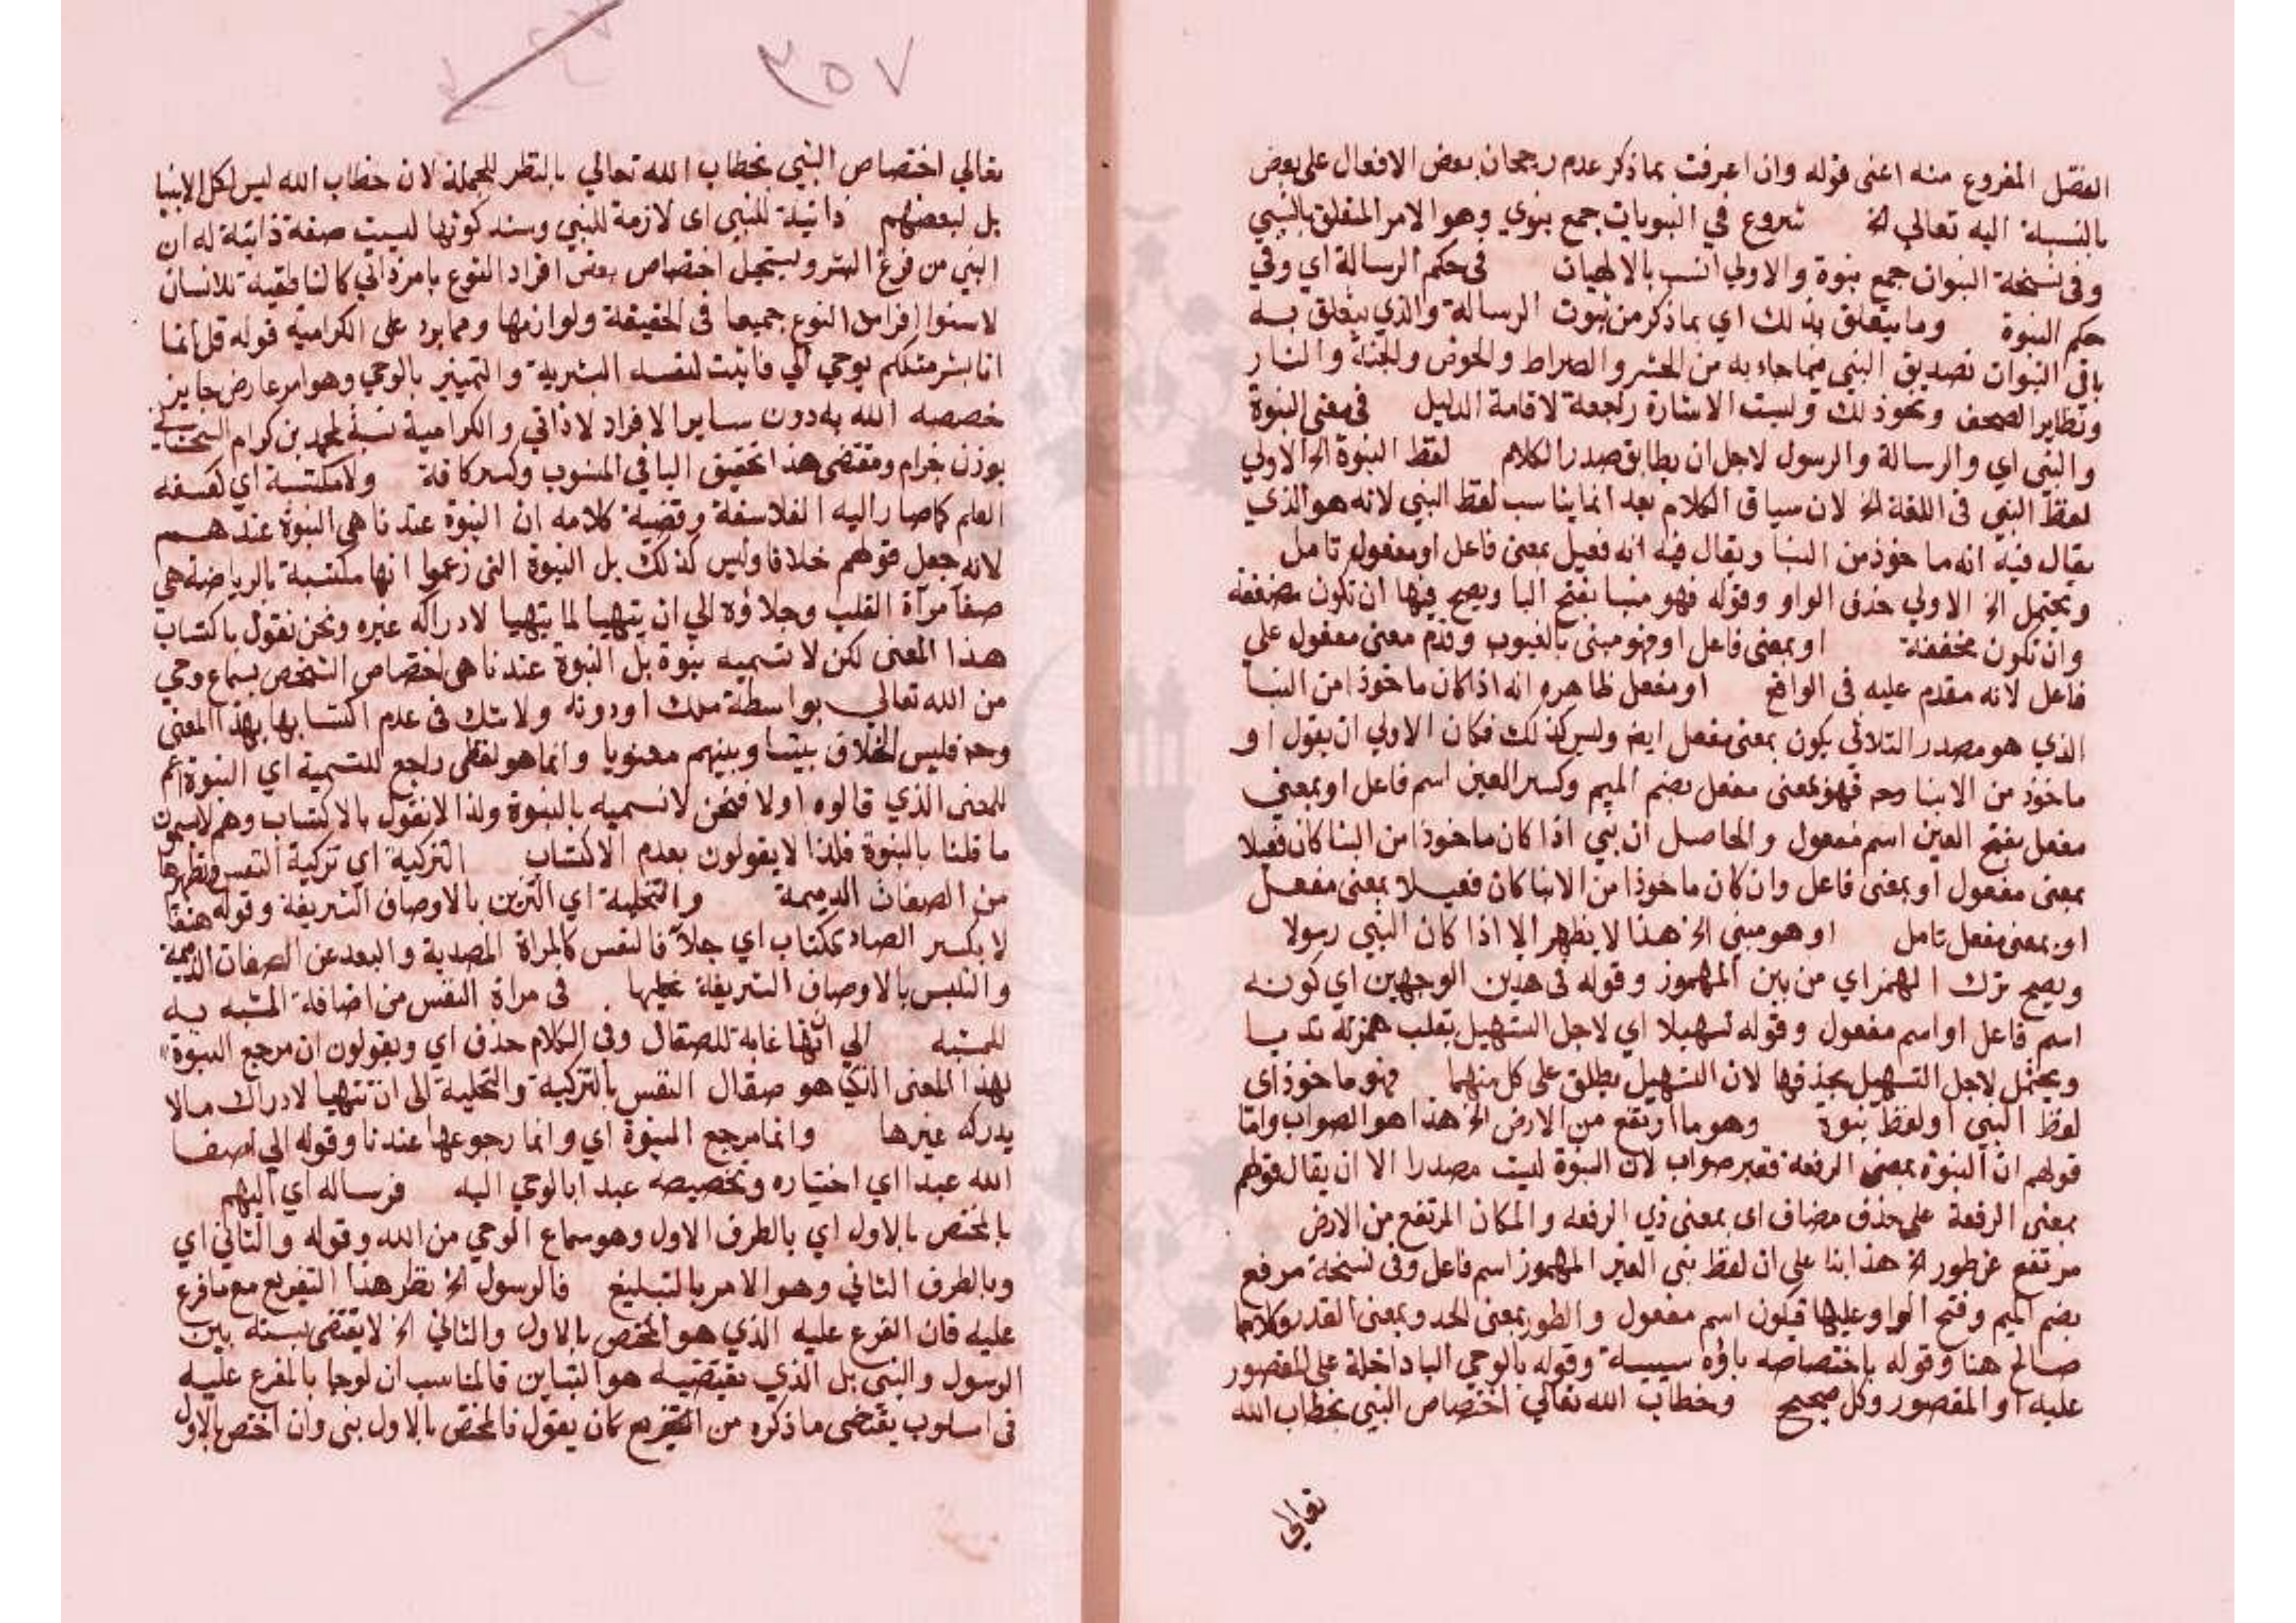 الفصل المفروع منه اعنى قوله وان اعرفت بماذكر عدم رجحان بعض الافعال على بعض
بالنسبة اليه تعالي الخ شروع في النبويات جمع بنوي وهو الامر المتعلق بالنبي
وفى نسخة النبوات جمع بنوة والاولي انسب بالالهيات فى حكم الرسالة اي وفي
حكم النبوة وما يتعلق بذلك اي بماذكر من ثبوت الرسالة والذي يتعلق به
باقى النبوات تصديق النبي فيما جاء به من الحشر والصراط والحوض والجنة والنار
وتطاير الصحف ونحو ذلك وليست الاشارة راجعة لاقامة الدليل فى معنى النبوة
والنبى اي والرسالة والرسول لاجل ان يطابق صدر الكلام لفظ النبوة الخ الاولي
لفظ النبي فى اللغة الخ لان سياق الكلام بعد انما يناسب لفظ النبي لانه هو الذي
يقال فيه انه ما خوذ من النبا ويقال فيه انه فعيل بمعنى فاعل او مفعول تامل
ويحتمل الخ الاولي حذف الواو وقوله فهو منبا بفتح البا ويصح فيها ان تكون مضعفة
وان تكون مخففة او بمعنى فاعل او فهو مبنى بالغيوب وقدم معنى مفعول على
فاعل لانه مقدم عليه فى الواقع او مفعل ظاهره انه اذا كان ماخوذا من النبا
الذي هو مصدر الثلاثي يكون بمعنى مفعل ايض وليس كذلك فكان الاولي ان يقول او
ماخوذ من الانبا وح فهو بمعنى مفعل بضم الميم وكسر العين اسم فاعل او بمعنى
مفعل بفتح العين اسم مفعول والحاصل ان نبي اذا كان ماخوذا من النبا كان فعيلا
بمعنى مفعول او بمعنى فاعل وان كان ماخوذا من الانبا كان فعيلا بمعنى مفعل
او بمعنى مفعل تامل او هو مبنى الخ هذا لا يظهر الا اذا كان النبي رسولا
ويصح ترك الهمز اي من بين المهموز وقوله فى هدين الوجهين اي كونه
اسم فاعل او اسم مفعول وقوله تسهيلا اي لاجل التسهيل بقلب همزته
ويحتمل لاجل التسهيل بحذفها لان التسهيل يطلق على كل منهما فهو ماخوذ اى
لفظ النبي او لفظ بنوة وهو ما ارتفع من الارض الخ هذا هو الصواب واما
قولهم ان النبوة بمعنى الرفعة فغير صواب لان النبوة ليست مصدرا الا ان يقال قولهم
بمعنى الرفعة على حذف مضاف اى بمعنى ذي الرفعه والمكان المرتفع من الارض
مرتفع عن طور الخ هذا بنا على ان لفظ بنى الغير المهموز اسم فاعل وفى نسخة مرفع
بضم الميم وفتح الواو وعليها فيكون اسم مفعول والطور بمعنى الحد وبمعنى القدر وكلاهما
صالح هنا وقوله باختصاصه باؤه سببية وقوله بالوحي البا داخلة على المقصور
عليه او المقصور وكل صحيح وخطاب الله تعالي اختصاص النبي بخطاب الله
تعالي
٣٥٧
تعالي اختصاص النبي بخطاب الله تعالي بالنظر للجملة لان خطاب الله ليس لكل الانبيا
بل لبعضهم ذاتية للنبي اى لازمة للنبي وسند كونها ليست صفة ذاتية له ان
النبي من نوع البشر ويستحيل اختصاص بعض افراد النوع بامر ذاتي كالناطقية للانسان
لاستوا افراد النوع جميعا فى الحقيقة ولوازمها ومما يرد على الكرامية قوله قل انما
انا بشر مثلكم يوحي الي فاثبت لنفسه البشرية والتمييز بالوحي وهو امر عارض جايز
خصصه الله به دون ساير الافراد لا ذاتي والكرامية نسبة لمحمد بن كرام السجستاني
بوزن خرام ومقتضى هذا تخفيق اليا في المنسوب وكسر كافة ولا مكتسبة اي لفسفه
العلم كما صار اليه الفلاسفة وقضية كلامه ان النبوة عندنا هى النبوة عندهم
لانه جعل قولهم خلافا وليس كذلك بل النبوة التى زعموا انها مكتسبة بالرياضة هى
صفا مرآة القلب وجلاؤه الي ان يتهيا لما يتهيا لادراكه غيره ونحن نقول باكتساب
هذا المعنى لكن لا نسميه بنوة بل النبوة عندنا هى اختصاص الشخص بسماع وحي
من الله تعالي بواسطة ملك او دونه ولا شك فى عدم اكتسابها بهذا المعنى
وح فليس الخلاف بيننا وبينهم معنويا وانما هو لفظى راجع للتسمية اي النبوة اسم
للمعنى الذي قالوه اولا فنحن لا نسميه بالنبوة ولذا لا نقول بالاكتساب وهم لا يسمون
ما قلنا بالنبوة فلذا لا يقولون بعدم الاكتساب التزكية اي تزكية النفس وتطهيرها
من الصفات الدميمة والتحلية اي التزين بالاوصاف الشريفة وقوله صقا
لا بكسر الصاد ككتاب اي جلا فالنفس كالمراة المصدية والبعد عن الصفات الذميمة
والتلبس بالاوصاف الشريفة فى مراة النفس من اضافة المشبه به
للمشبه الي انها غاية للصقال وفى الكلام حذف اي ويقولون ان مرجع النبوة
بهذا المعنى الذي هو صقال النفس بالتزكية والتحلية الى ان تتهيا لادراك مالا
يدركه غيرها وانما مرجع النبوة اي وانما رجوعها عندنا وقوله الي اصطفا
الله عبدا اي اختياره وتخصيصه عبدا بالوحي اليه فرساله اي اليهم
بالمختص بالاول اي بالطرف الاول وهو سماع الوحي من الله وقوله والثاني اي
وبالطرف الثاني وهو الامر بالتبليغ فالرسول الخ نظر هذا التفريع مع ما فرع
عليه فان الفرع عليه الذي هو المختص بالاول والثاني الخ لا يقتضى نسبته بين
الرسول والنبي بل الذي يقتضيه هو التباين فالمناسب ان لوجا بالمفرع عليه
فى اسلوب يقتضى ما ذكره من التفريع كان يقول فالمختص بالاول بنى وان اختص بالاول